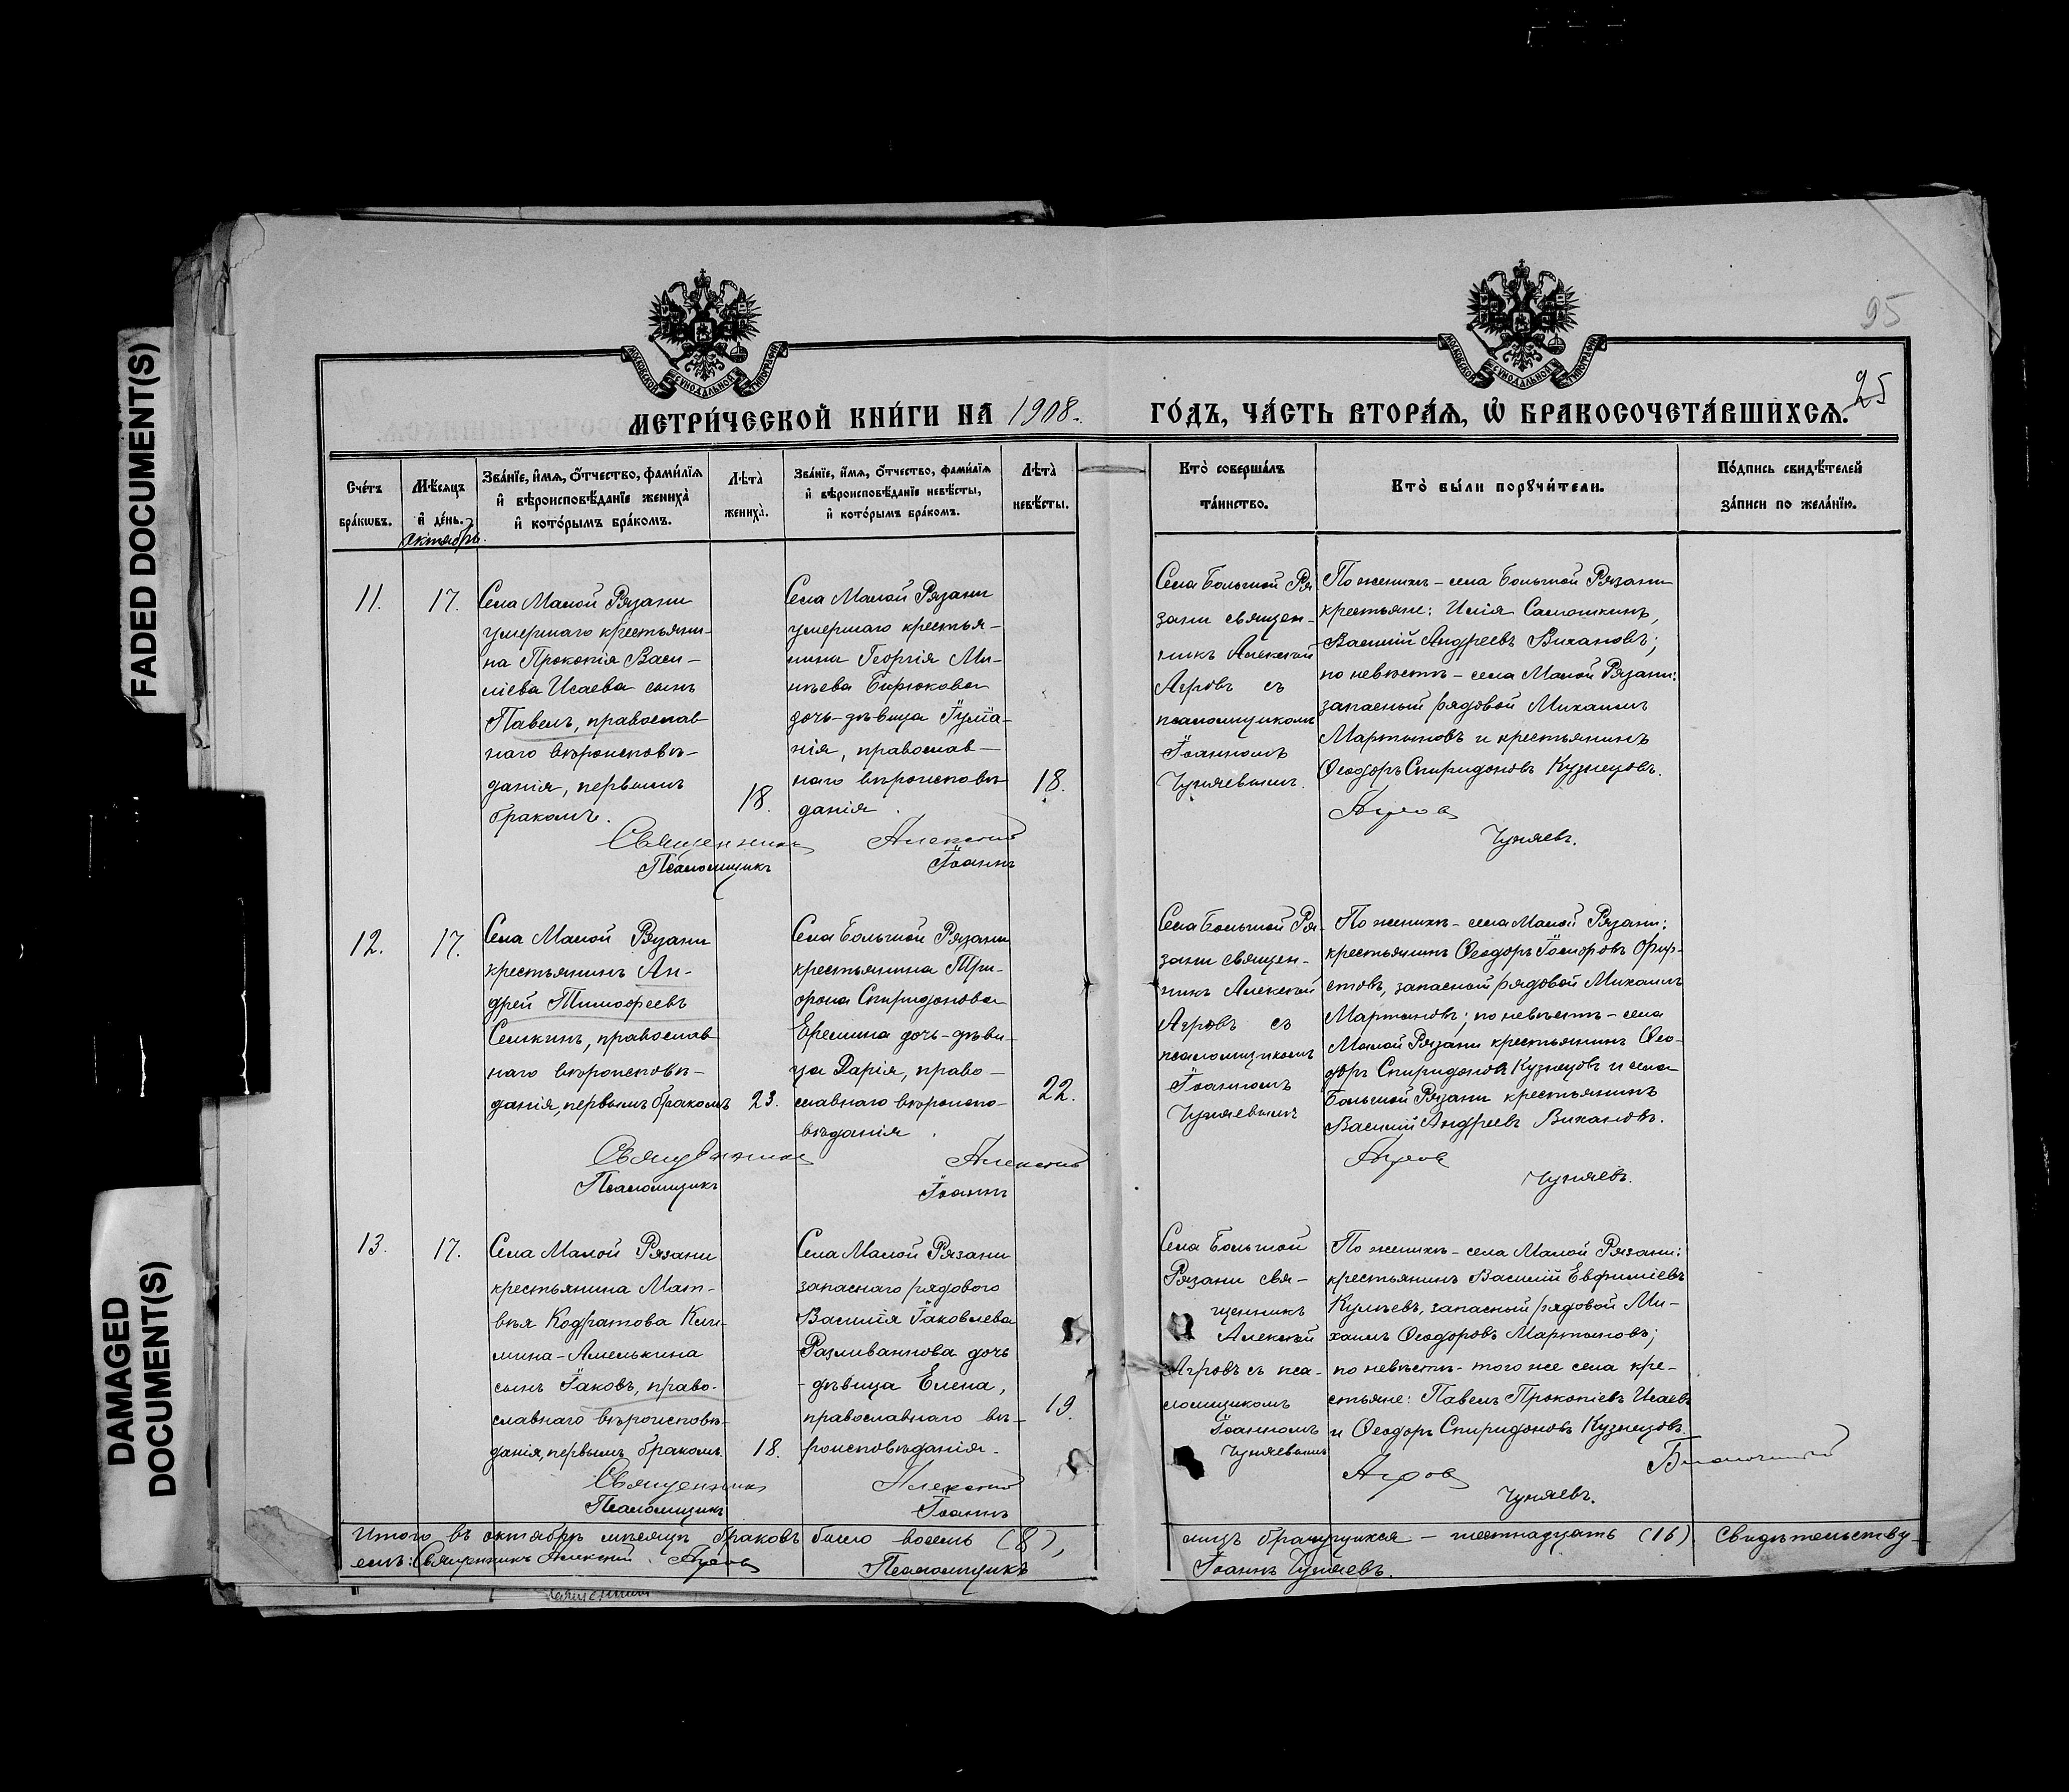 FADED DOCUMENT(S)
DAMAGED
DOCUMENT(S)
95
25
МОСКОВСКОЙ СѴНОДАЛЬНОЙ ТИПОГРАФІИ
МОСКОВСКОЙ СѴНОДАЛЬНОЙ ТИПОГРАФІИ
МЕТРИ́ЧЕСКОЙ КНИ́ГИ НА 1908.
ГО́ДЪ, ЧА́СТЬ ВТОРА́Ѧ, Ѽ БРАКОСОЧЕТА́ВШИХСѦ.
Сче́тъ
бра́кѡвъ.
Мѣ́сѧцъ
и҆ де́нь.
Октябрь.
Зва́нїе, и҆́мѧ, ѻ҆́тчество, фами́лїѧ
и҆ вѣроисповѣ́данїе жениха̀
и҆ кото́рымъ бра́комъ.
Лѣ́та̀
жениха̀.
Зва́нїе, и҆́мѧ, ѻ҆́тчество, фами́лїѧ
и҆ вѣроисповѣ́данїе невѣ́сты,
и҆ кото́рымъ бра́комъ.
Лѣ́та̀
невѣ́сты.
Кто̀ соверша́лъ
та́инство.
Кто̀ бы́ли порꙋчи́тели.
По́дпись свидѣ́телей
за́писи по жела́нїю.
11.
17.
Села Малой Рязани
умершаго крестьяни-
на Прокопія Васи-
ліева Исаева сынъ
Павелъ, православ
наго вѣроисповѣ-
данія, первымъ
бракомъ.
18.
Села Малой Рязани
умершаго крестья-
нина Георгія Ми-
нѣева Бирюкова
дочь-дѣвица Іуліа-
нія, православ-
наго вѣроисповѣ
данія.
18.
Священникъ Алексій
Псаломщикъ Іоаннъ
Села Большой Ря
зани священ-
никъ Алексій
Агровъ съ
псаломщикомъ
Іоанномъ
Чуняевымъ.
По женихѣ - села Большой Рязани
крестьяне: Илія Самошкинъ,
Василій Андреевъ Вихановъ;
по невѣстѣ - села Малой Рязани:
запасный рядовой Михаилъ
Мартыновъ и крестьянинъ
Ѳеодоръ Спиридоновъ Кузнецовъ.
Агровъ
Чуняевъ.
12.
17.
Села Малой Рязани
крестьянинъ Ан-
дрей Тимофеевъ
Семкинъ, православ
наго вѣроисповѣ-
данія, первымъ бракомъ
23.
Села Большой Рязани
крестьянина Три-
фона Спиридонова
Еремина дочь-дѣви-
ца Дарія, право-
славнаго вѣроиспо-
вѣданія.
22.
Священникъ Алексій
Псаломщикъ Іоаннъ
Села Большой Ря-
зани священ-
никъ Алексій
Агровъ съ
псаломщикомъ
Іоанномъ
Чуняевымъ
По женихѣ - села Малой Рязани:
крестьянинъ Ѳеодоръ
запасной рядовой Михаилъ
Мартыновъ; по невѣстѣ - села
Малой Рязани крестьянинъ Ѳео-
доръ Спиридоновъ Кузнецовъ и села
Большой Рязани крестьянинъ
Василій Андреевъ Вихановъ.
Агровъ
Чуняевъ.
13.
17.
Села Малой Рязани
крестьянина Мат-
вѣя Кодратова Кли-
мина-Амелькина
сынъ Іаковъ, право-
славнаго вѣроисповѣ-
данія, первымъ бракомъ.
18.
Села Малой Рязани
запаснаго рядового
Василія Іаковлева
Разливанова дочь
-дѣвица Елена,
православнаго вѣ-
роисповѣданія.
19.
Священникъ Алексій
Псаломщикъ Іоаннъ
Села Большой
Рязани свя-
щенникъ
Алексѣй
Агровъ съ пса-
ломщикомъ
Іоанномъ
Чуняевымъ
По женихѣ - села Малой Рязани:
крестьянинъ Василій Евфиміевъ
запасный рядовой Ми-
хаилъ Ѳеодоровъ Мартыновъ;
по невѣстѣ - того же села кре-
стьяне: Павелъ Прокопіевъ Исаевъ
и Ѳеодоръ Спиридоновъ Кузнецовъ.
Агровъ
Чуняевъ.
Итого въ октябрѣ мѣсяцѣ браковъ было восемь (8), лицъ брачущихся - шестнадцать (16). Свидѣтельству-
емъ: Священникъ Алексій Агровъ Псаломщикъ Іоаннъ Чуняевъ.